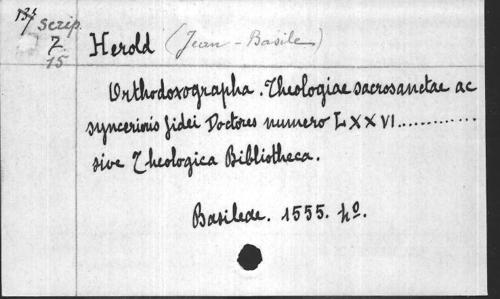 scrip.
7
15
Herold (Jean-Basile)
Orthodoxographa. Theologiae sacrosanctae ac
syncerioris fidei Doctores numero LXXVI.............
sive Theologica Bibliotheca.
Basileae. 1555. 4º.